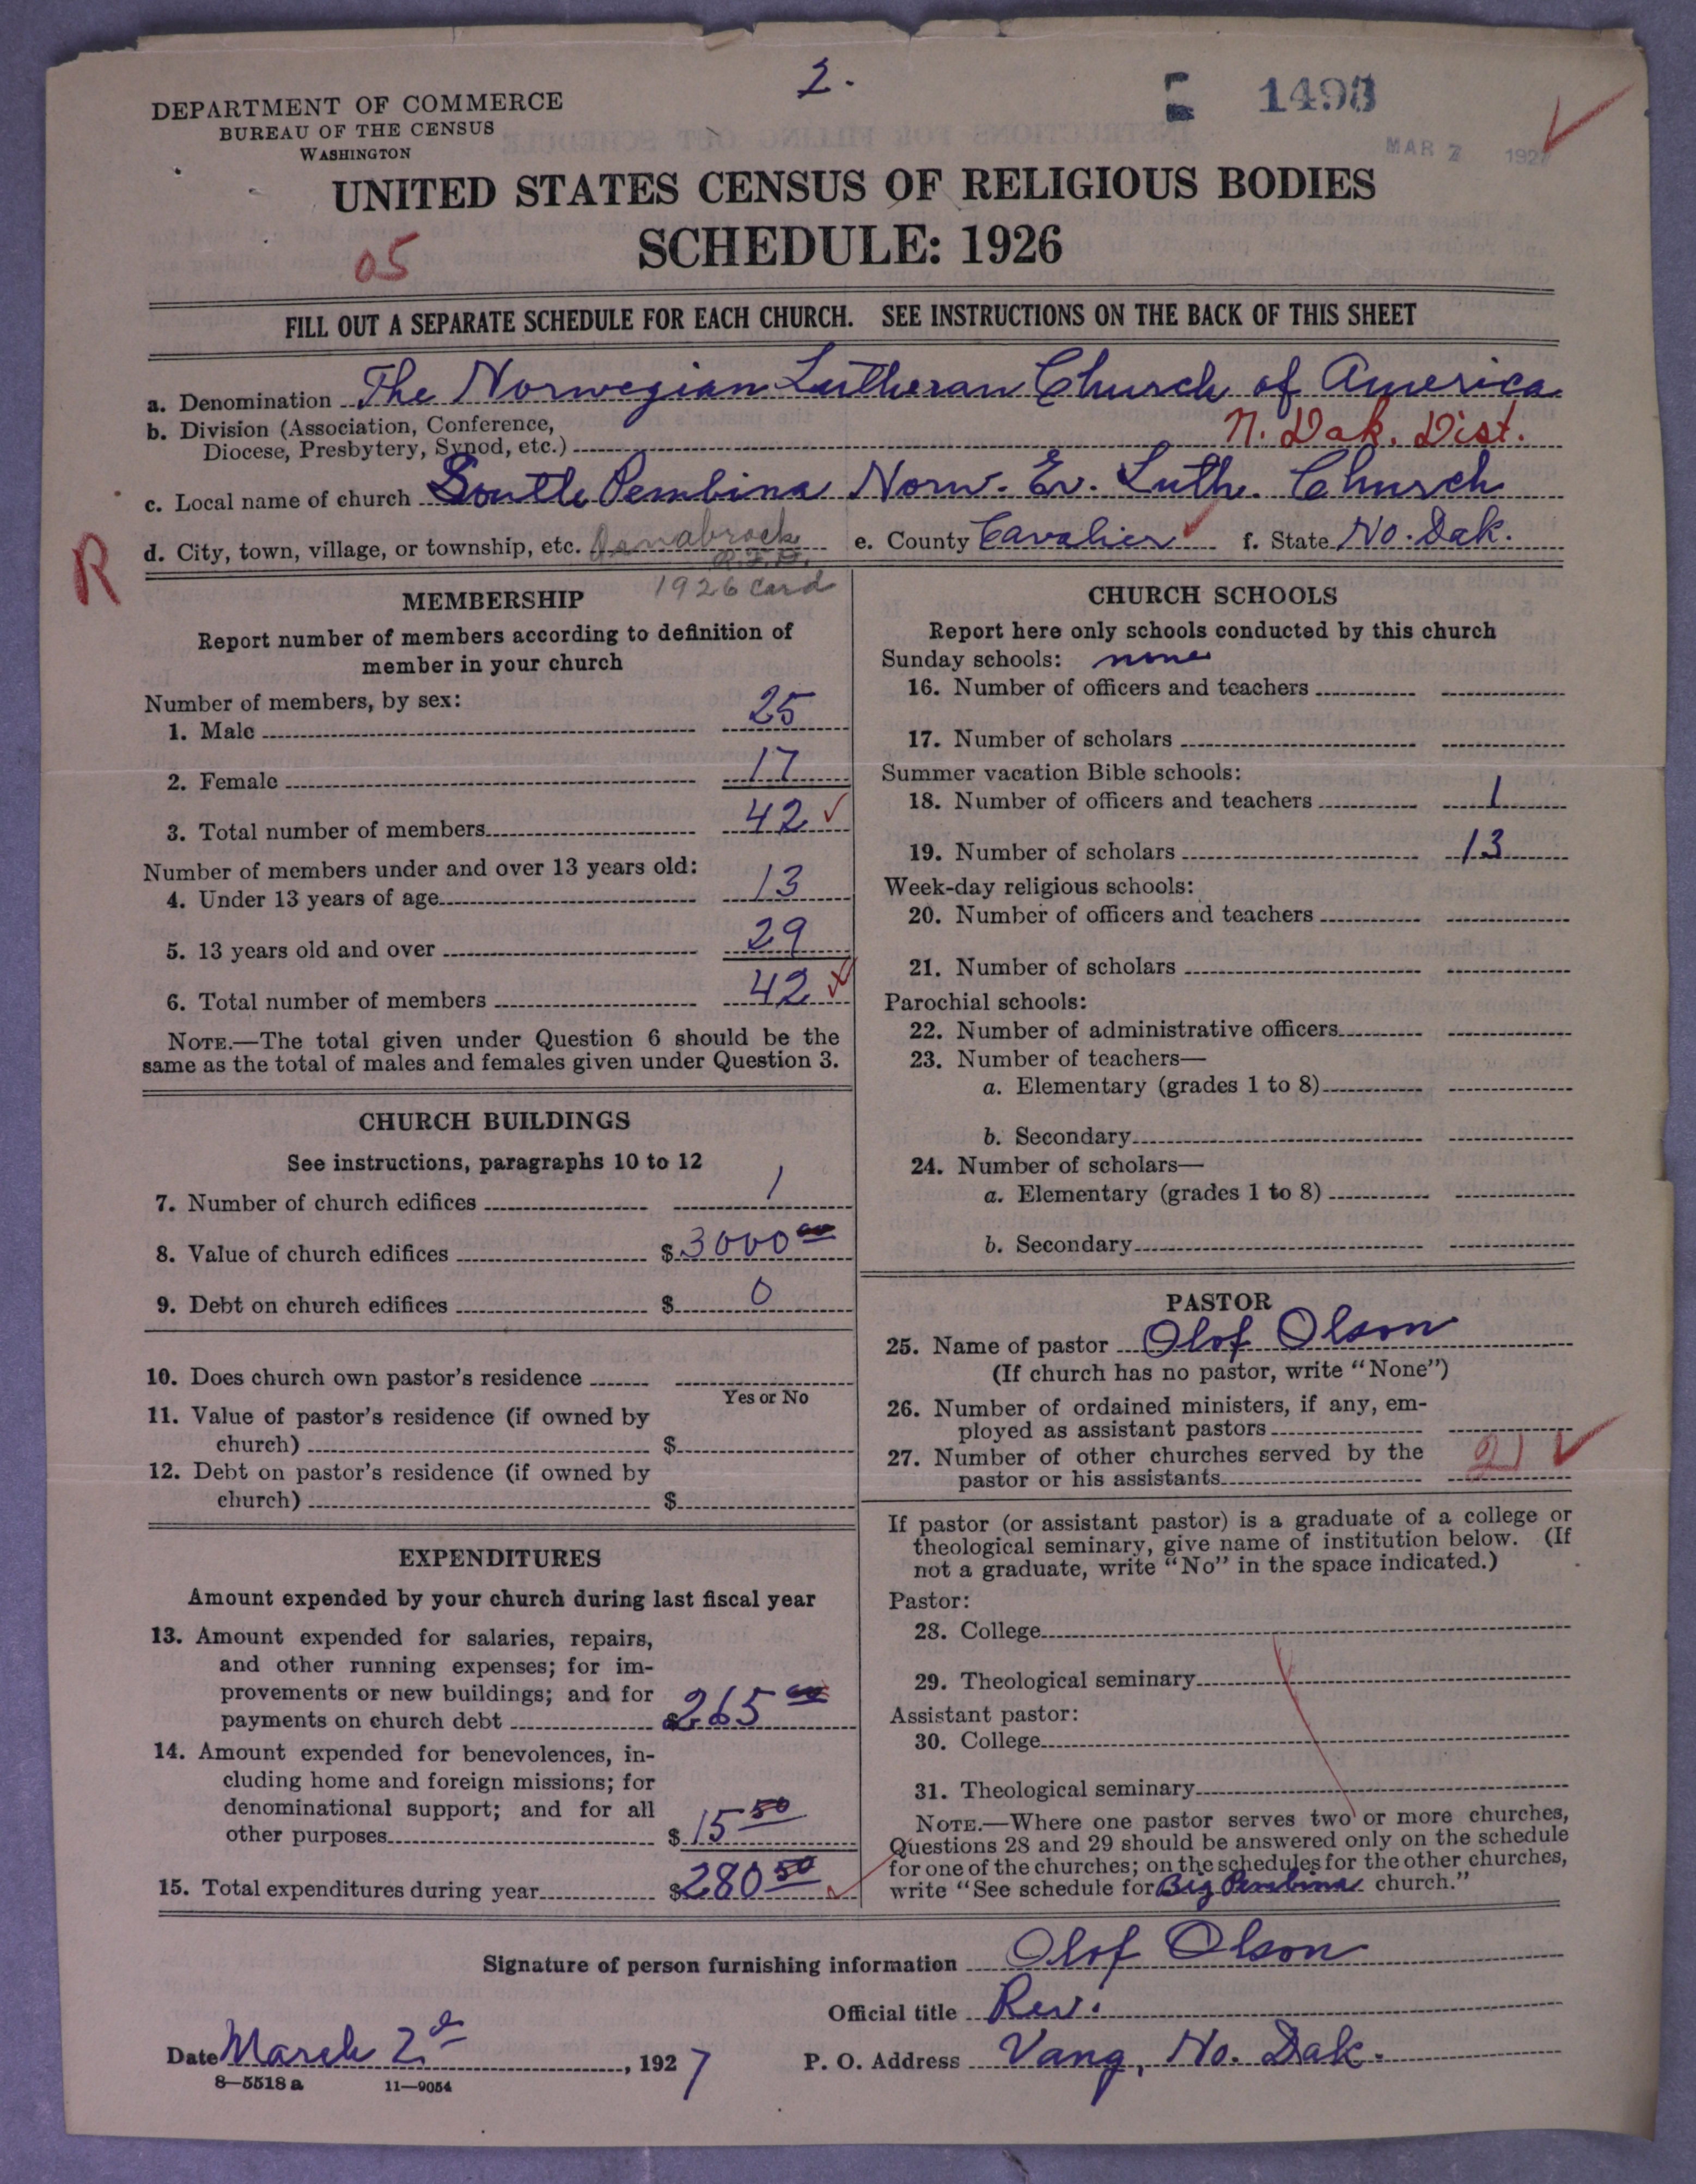 2.
1493
MAR 7 1927
DEPARTMENT OF COMMERCE
BUREAU OF THE CENSUS
WASHINGTON
UNITED STATES CENSUS OF RELIGIOUS BODIES
SCHEDULE: 1926
05
FILL OUT A SEPARATE SCHEDULE FOR EACH CHURCH. SEE INSTRUCTIONS ON THE BACK OF THIS SHEET
a. Denomination The Norwegian Lutheran Church of America
b. Division (Association, Conference,
Diocese, Presbytery, Synod, etc.) N. Dak. Dist.
c. Local name of church South Pembina Norw. Ev. Luth. Church
R
d. City, town, village, or township, etc. Osnabrock e. County Cavalier f. State No. Dak.
R.F.D.
1926 Card
MEMBERSHIP
Report number of members according to definition of
member in your church
Number of members, by sex:
1. Male 25
2. Female 17
3. Total number of members 42
Number of members under and over 13 years old:
4. Under 13 years of age 13
5. 13 years old and over 29
6. Total number of members 42
NOTE.—The total given under Question 6 should be the
same as the total of males and females given under Question 3.
CHURCH BUILDINGS
See instructions, paragraphs 10 to 12
7. Number of church edifices 1
8. Value of church edifices $ 3000 00
9. Debt on church edifices $ 0
10. Does church own pastor's residence
Yes or No
11. Value of pastor's residence (if owned by
church) $
12. Debt on pastor's residence (if owned by
church) $
EXPENDITURES
Amount expended by your church during last fiscal year
13. Amount expended for salaries, repairs,
and other running expenses; for im-
provements or new buildings; and for
payments on church debt $ 265 00
14. Amount expended for benevolences, in-
cluding home and foreign missions; for
denominational support; and for all
other purposes $ 15 50
15. Total expenditures during year $ 280 50
CHURCH SCHOOLS
Report here only schools conducted by this church
Sunday schools: none
16. Number of officers and teachers
17. Number of scholars
Summer vacation Bible schools:
18. Number of officers and teachers 1
19. Number of scholars 13
Week-day religious schools:
20. Number of officers and teachers
21. Number of scholars
Parochial schools:
22. Number of administrative officers
23. Number of teachers—
a. Elementary (grades 1 to 8)
b. Secondary
24. Number of scholars—
a. Elementary (grades 1 to 8)
b. Secondary
PASTOR
25. Name of pastor Olof Olson
(If church has no pastor, write "None")
26. Number of ordained ministers, if any, em-
ployed as assistant pastors
27. Number of other churches served by the
pastor or his assistants 2
If pastor (or assistant pastor) is a graduate of a college or
theological seminary, give name of institution below. (If
not a graduate, write "No" in the space indicated.)
Pastor:
28. College
29. Theological seminary
Assistant pastor:
30. College
31. Theological seminary
NOTE.—Where one pastor serves two or more churches,
Questions 28 and 29 should be answered only on the schedule
for one of the churches; on the schedules for the other churches,
write "See schedule for Big Pembina church."
Signature of person furnishing information Olof Olson
Official title Rev.
Date March 2d, 1927 P. O. Address Vang, No. Dak.
8—5518 a 11—9054